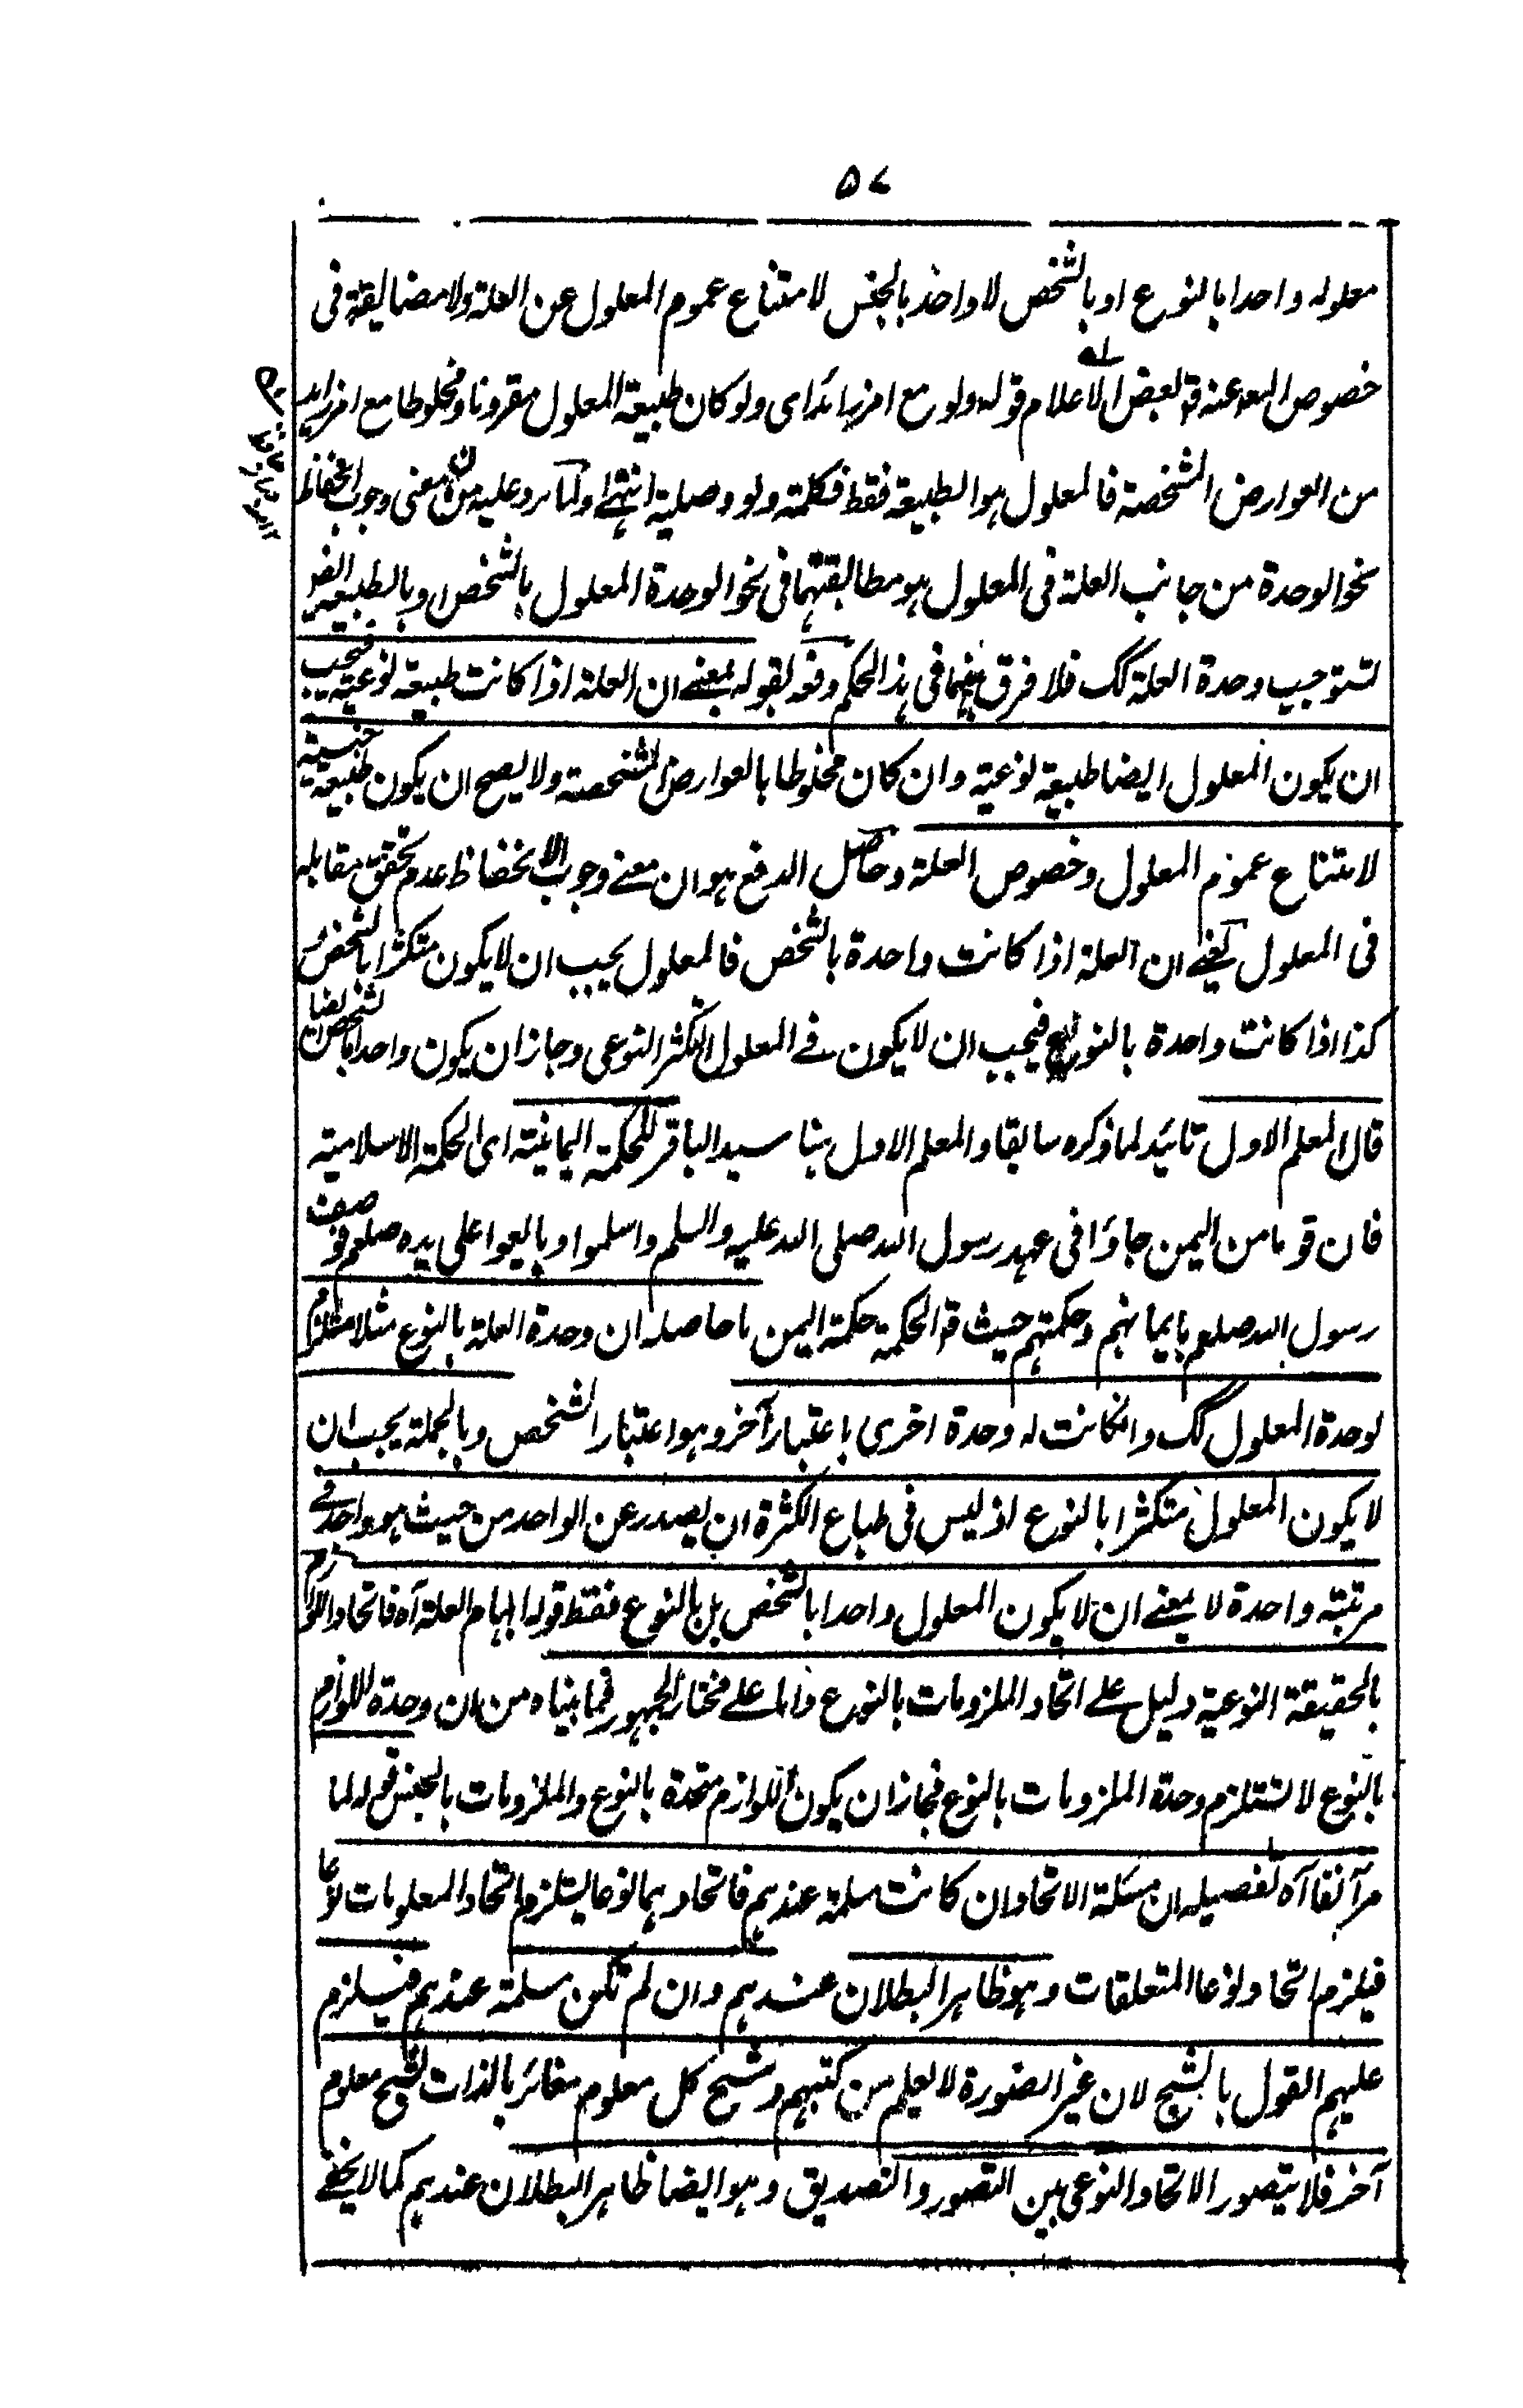 ٥٧
معلوله واحدا بالنوع او بالشخص لا واحد بالجنس لامتناع عموم المعلول عن العلة ولا مضايقة فى
خصوص المعلول عنه قه بعض الاعلام قوله ولو مع امر زائد اى ولو كان طبيعة المعلول مقرونا ومخلوطا مع امر زايد
من العوارض المشخصة فالمعلول هو الطبيعة فقط فكلمة ولو وصلية انتهى ولما يرد عليه من ان معنى وجوب انحفاظ
نحو الوحدة من جانب العلة فى المعلول هو مطابقتهما فى نحو الوحدة المعلول بالشخص او بالطبيعة
لتستوجب وحدة العلة كك فلا فرق بينهما فى هذا الحكم دفعه بقوله بمعنى ان العلة اذا كانت طبيعة نوعية فيجب
ان يكون المعلول ايضا طبيعة نوعية وان كان مخلوطا بالعوارض المشخصة ولا يصح ان يكون طبيعة جنسية
لامتناع عموم المعلول وخصوص العلة وحاصل الدفع هو ان معنى وجوب الانحفاظ عدم تحقق مقابله
فى المعلول يعنى ان العلة اذا كانت واحدة بالشخص فالمعلول يجب ان لا يكون متكثرا بالشخص
كذا اذا كانت واحدة بالنوع فيجب ان لا يكون فى المعلول التكثر النوعى وجاز ان يكون واحدا بالشخص ايضا
قال المعلم الاول تائيد لما ذكره سابقا والمعلم الاول بنا سيد الباقر للحكمة اليمانية اى الحكمة الاسلامية
فان قوما من اليمن جاؤا فى عهد رسول الله صلى الله عليه واله وسلم واسلموا وبايعوا على يده صلعم فوصف
رسول الله صلعم بايمانهم وحكمتهم حيث قه الحكمة حكمة اليمن ما حاصله ان وحدة العلة بالنوع مثلا مستلزم
لوحدة المعلول كك وانكانت له وحدة اخرى باعتبار آخر وهو اعتبار الشخص وبالجملة يجب ان
لا يكون المعلول متكثرا بالنوع اذ ليس فى طباع الكثرة ان يصدر عن الواحد من حيث هو واحد فى
مرتبة واحدة لا بمعنى ان لا يكون المعلول واحدا بالشخص بل بالنوع فقط قوله ابهام العلة آه فاتحاد اللوازم
بالحقيقة النوعية دليل على اتحاد الملزومات بالنوع واما على مختار الجمهور فما بيناه من ان وحدة اللوازم
بالنوع لا تستلزم وحدة الملزومات بالنوع فجاز ان يكون اللوازم متحدة بالنوع والملزومات بالجنس قوله لما
مر آنفا آه تفصيله ان مسئلة الاتحاد ان كانت مسلمة عندهم فاتحادهما نوعا يستلزم اتحاد المعلومات نوعا
فيلزم اتحاد نوعا المتعلقات وهو ظاهر البطلان عندهم وان لم تكن مسلمة عندهم فيلزم
عليهم القول بالشبح لان غير الصورة لا يعلم من كتبهم وشبح كل معلوم مغائر بالذات لشبح معلوم
آخر فلا يتصور الاتحاد النوعى بين التصور والتصديق وهو ايضا ظاهر البطلان عندهم كما لا يخفى